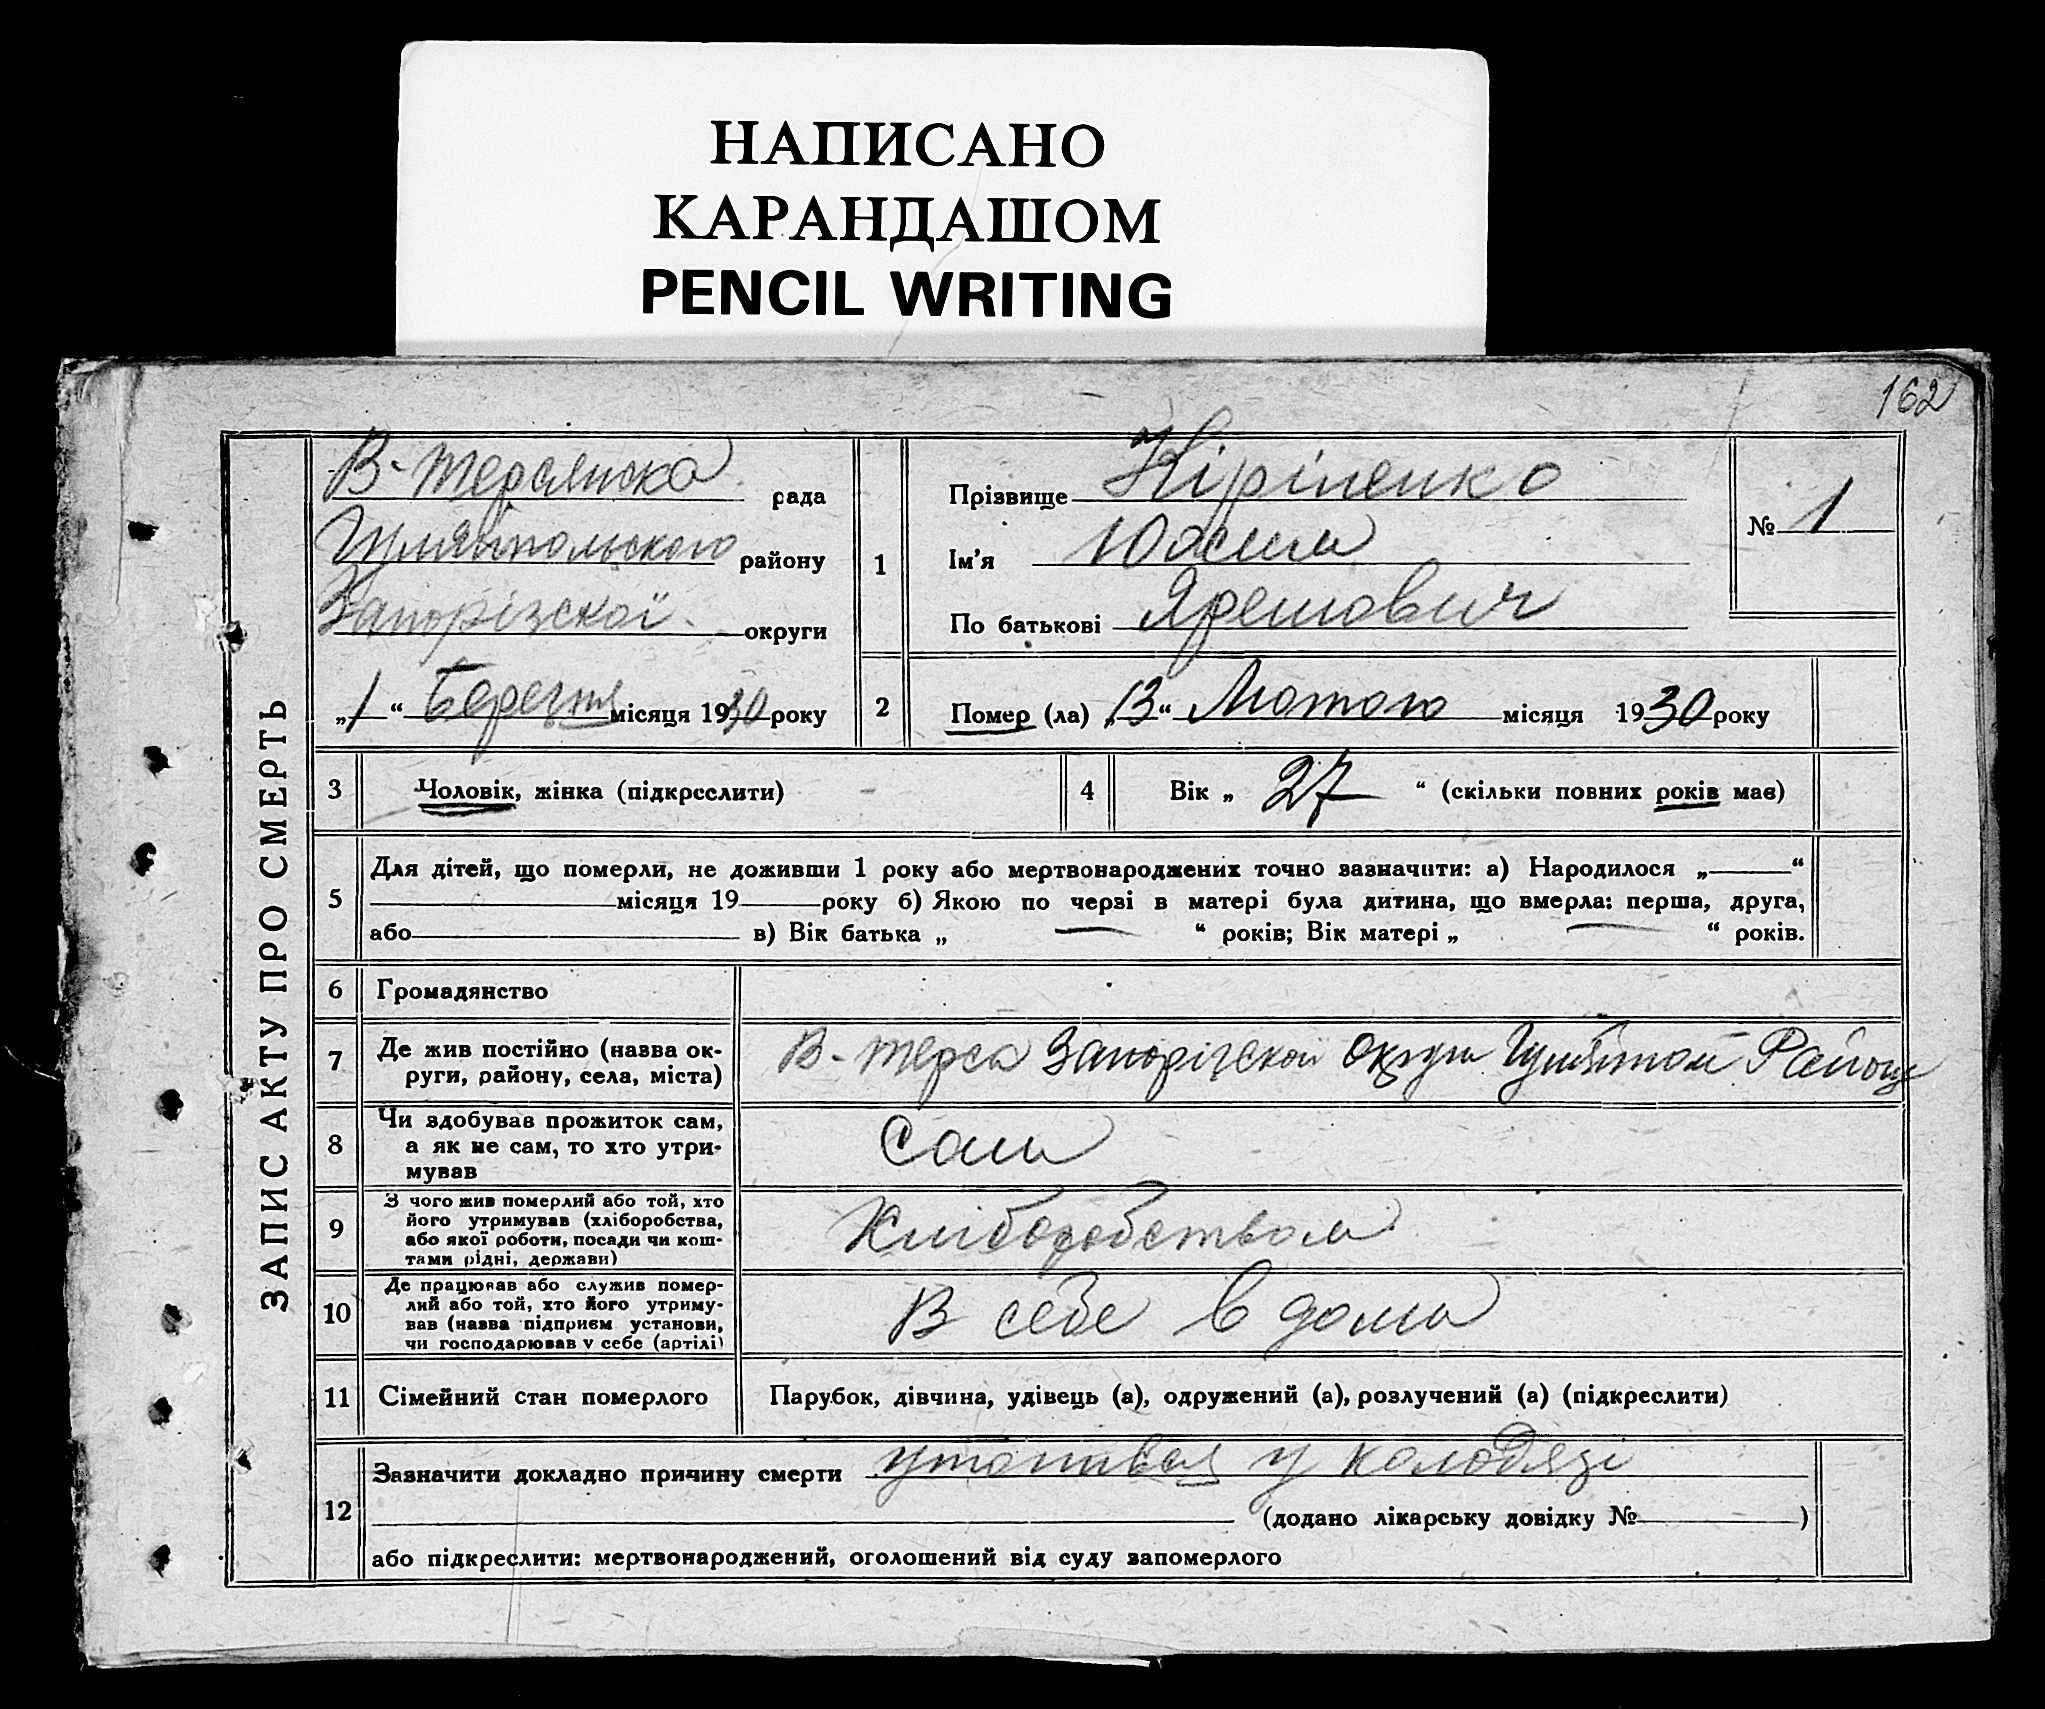 НАПИСАНО
КАРАНДАШОМ
PENCIL WRITING
162
ЗАПИС АКТУ ПРО СМЕРТЬ
В-Терсянска рада
Гуляйпольского району
Запорізскої округи
„1“ Березня місяця 1930 року
1
Прізвище Кіріленко
Ім'я Юхим
По батькові Яремович
№ 1
2
Помер (ла) „13“ Лютого місяця 1930 року
3
Чоловік, жінка (підкреслити)
4
Вік „ 27 “ (скільки повних років має)
5
Для дітей, що померли, не доживши 1 року або мертвонароджених точно зазначити: а) Народилося „ “
місяця 19 року б) Якою по черзі в матері була дитина, що вмерла: перша, друга,
або в) Вік батька „ — “ років; Вік матері „ — “ років.
6
Громадянство
7
Де жив постійно (назва ок-
руги, району, села, міста)
В-Терса Запорізской Округи Район
8
Чи здобував прожиток сам,
а як не сам, то хто утри-
мував
Сам
9
З чого жив померлий або той, хто
його утримував (хліборобства,
або якої роботи, посади чи кош-
тами рідні, держави)
Хліборобством
10
Де працював або служив помер-
лий або той, хто його утриму-
вав (назва підприєм установи,
чи господарював у себе (артілі)
В себе в дома
11
Сімейний стан померлого
Парубок, дівчина, удівець (а), одружений (а), розлучений (а) (підкреслити)
12
Зазначити докладно причину смерти утопився у колодязі
(додано лікарську довідку № )
або підкреслити: мертвонароджений, оголошений від суду запомерлого